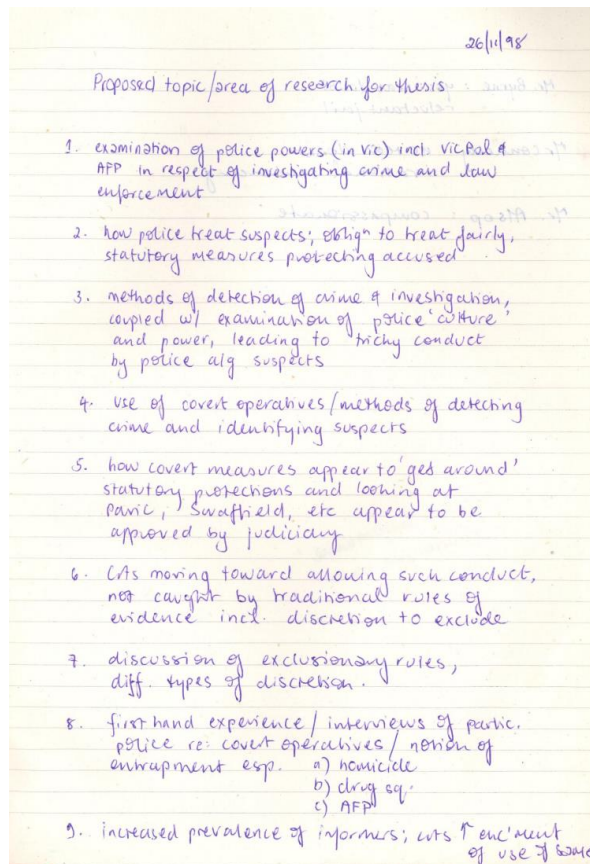 26/11/98
Proposed topic/area of research for thesis
1. examination of police powers (in Vic) incl VicPol &
AFP in respect of investigating crime and law
enforcement
2. how police treat suspects; obligⁿ to treat fairly,
statutory measures protecting accused
3. methods of detection of crime & investigation,
coupled w/ examination of police 'culture'
and power, leading to 'tricky conduct
by police a/g suspects
4. use of covert operatives/methods of detecting
crime and identifying suspects
5. how covert measures appear to 'get around'
statutory protections and looking at
Pavic, Swaffield, etc appear to be
approved by judiciary
6. Cts moving toward allowing such conduct,
not caught by traditional rules of
evidence incl. discretion to exclude
7. discussion of exclusionary rules,
diff. types of discretion.
8. first hand experience / interviews of partic.
police re: covert operatives / notion of
entrapment esp. a) homicide
b) drug sq.
c) AFP
9. increased prevalence of informers; cts ↑ enc'ment
of use of same